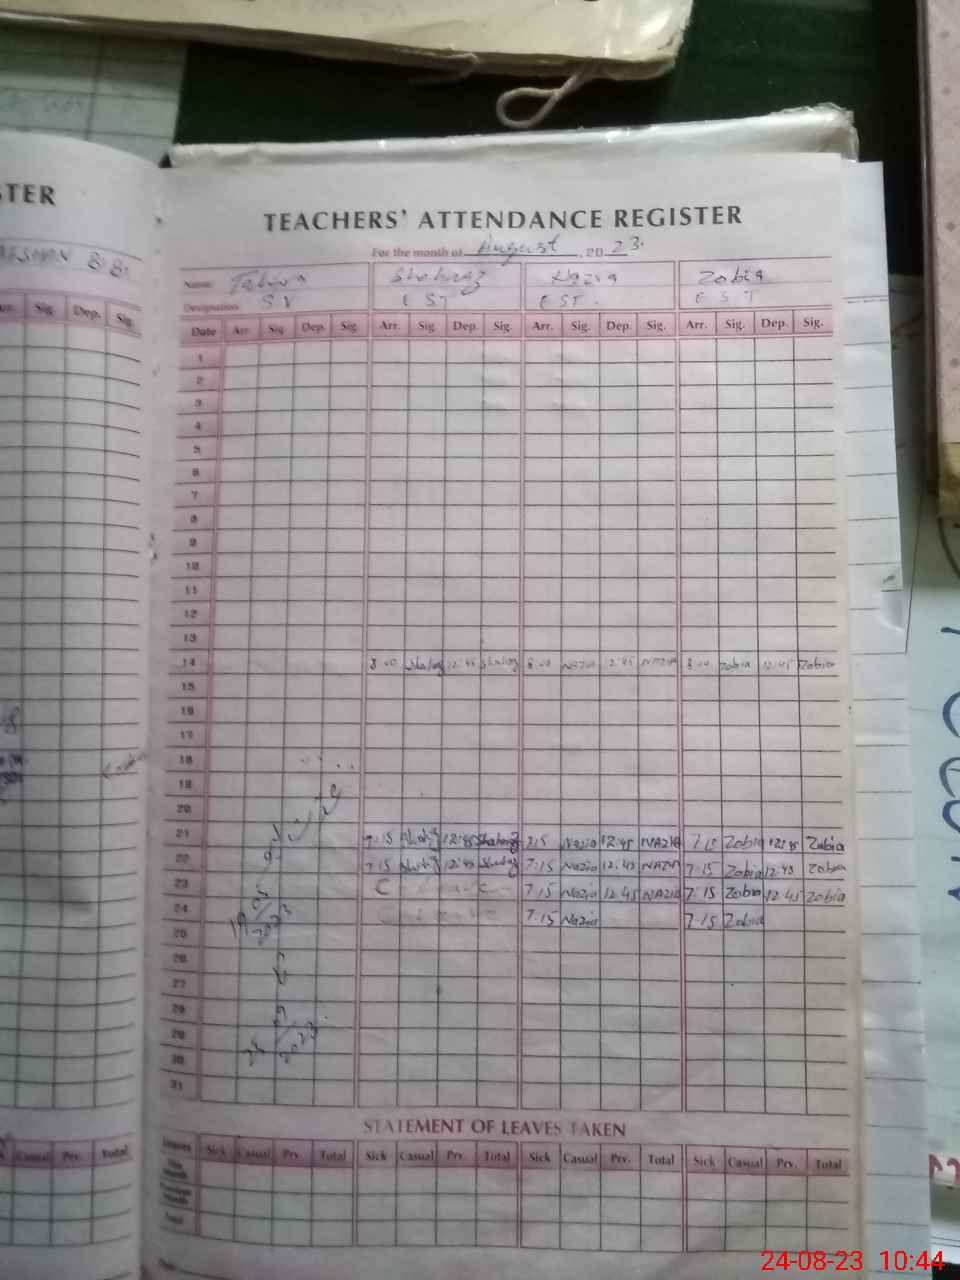 STER
TEACHERS' ATTENDANCE REGISTER
For the month of August, 2023.
Name Tahira Shahnaz Nazia Zobia
Designation SV EST EST. EST
Sig. Dep. Sig.
Date Arr. Sig. Dep. Sig. Arr. Sig. Dep. Sig. Arr. Sig. Dep. Sig. Arr. Sig. Dep. Sig.
1
2
3
4
5
6
7
8
9
10
11
12
13
14 8.00 12:45 8.00 NAZIA 12:45 NAZIA 8.00 Zobia 12:45 Zobia
15
16
17
18
19
20
21 7.15 12:45 Shahnaz 7.15 Nazia 12:45 NAZIA 7.15 Zobia 12:45 Zobia
22 7.15 12:45 7.15 Nazia 12:45 NAZIA 7.15 Zobia 12:45 Zobia
23 C-Leave- 7.15 Nazia 12:45 NAZIA 7.15 Zobia 12:45 Zobia
24 7.15 Nazia 7.15 Zobia
25
26
27
28
29
30
31
STATEMENT OF LEAVES TAKEN
Casual Prv. Total
Leaves Sick Casual Prv. Total Sick Casual Prv. Total Sick Casual Prv. Total Sick Casual Prv. Total
This month
Total
24-08-23 10:44